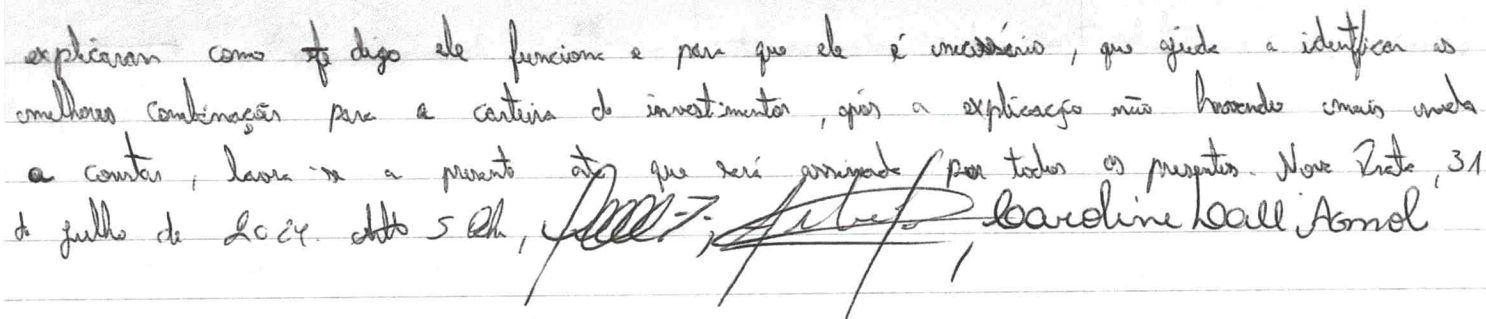 explicaram como digo ele funciona e para que ele é necessário, que ajuda a identificar as
melhores combinações para a carteira de investimentos, após a explicação não havendo mais nada
a constar, lavra-se a presente ata que será assinada por todos os presentes. Nova Prata, 31
de julho de 2024. Caroline Dall Agnol